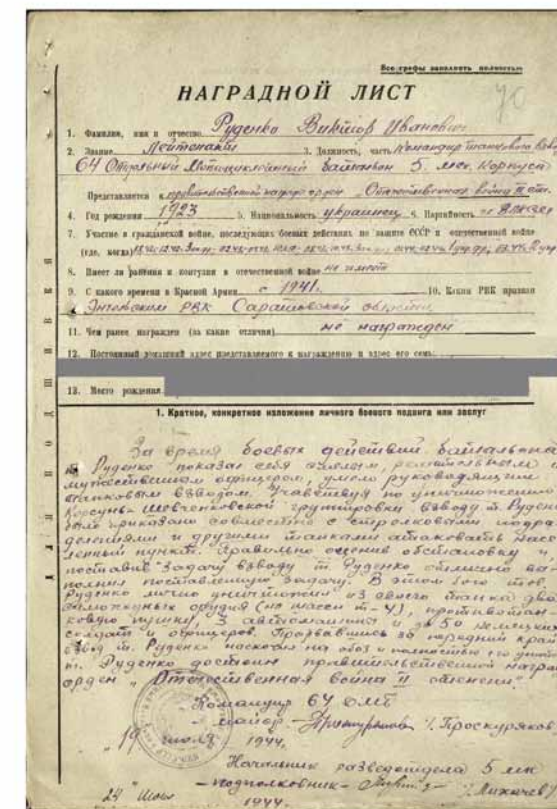 Все графы заполнять полностью
НАГРАДНОЙ ЛИСТ
70
1. Фамилия, имя и отчество Руденко Виктор Иванович
2. Звание Лейтенант 3. Должность, часть Командир танкового взвода
64 Отдельный Мотоциклетный Батальон 5 мех. Корпуса
Представляется к правительственной награде орден „Отечественная война II ст.
4. Год рождения 1923 5. Национальность украинец 6. Партийность
7. Участие в гражданской войне, последующих боевых действиях по защите СССР и отечественной войне
(где, когда)
8. Имеет ли ранения и контузии в отечественной войне не имеет
9. С какого времени в Красной Армии с 1941. 10. Каким РВК призван
РВК Саратовской области
11. Чем ранее награжден (за какие отличия) не награжден
12. Постоянный домашний адрес представляемого к награждению и адрес его семьи
13. Место рождения
1. Краткое, конкретное изложение личного боевого подвига или заслуг
За время боевых действий батальона
т. Руденко показал себя смелым, решительным и
мужественным офицером, умело руководящим
танковым взводом. Участвуя по уничтожению
Корсунь-Шевченковской группировки взводу т. Руденко
было приказано совместно с стрелковыми подра
делениями и другими танками атаковать насе
ленный пункт. Правильно оценив обстановку и
поставив задачу взводу т. Руденко отлично вы-
полнил поставленную задачу. В этом бою тов.
Руденко лично уничтожил из своего танка два
самоходных орудия (на шасси т-4), противотан-
ковую пушку, 3 автомашины и до 50 немецких
солдат и офицеров. Прорвавшись за передний край
взвод т. Руденко наскочил на обоз и полностью его
т. Руденко достоин правительственной награ
орден „Отечественная война II степени".
Командир 64 ОМБ
майор /Проскуряков
„19" июля 1944.
Начальник разведотдела 5 мк
подполковник
1944.